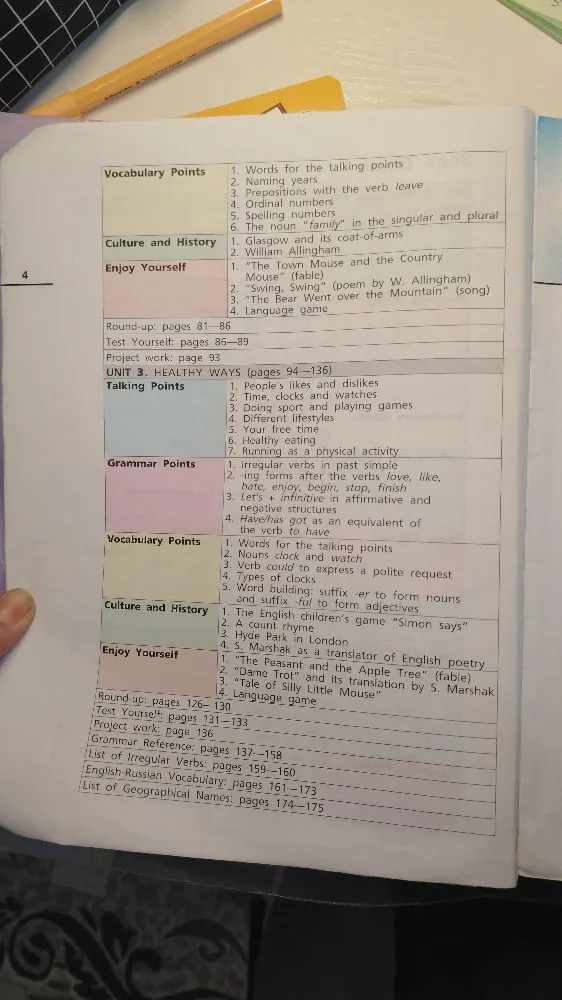 4
Vocabulary Points
1. Words for the talking points
2. Naming years
3. Prepositions with the verb leave
4. Ordinal numbers
5. Spelling numbers
6. The noun "family" in the singular and plural
Culture and History
1. Glasgow and its coat-of-arms
2. William Allingham
Enjoy Yourself
1. "The Town Mouse and the Country
Mouse" (fable)
2. "Swing, Swing" (poem by W. Allingham)
3. "The Bear Went over the Mountain" (song)
4. Language game
Round-up: pages 81—86
Test Yourself: pages 86—89
Project work: page 93
UNIT 3. HEALTHY WAYS (pages 94—136)
Talking Points
1. People's likes and dislikes
2. Time, clocks and watches
3. Doing sport and playing games
4. Different lifestyles
5. Your free time
6. Healthy eating
7. Running as a physical activity
Grammar Points
1. Irregular verbs in past simple
2. -ing forms after the verbs love, like,
hate, enjoy, begin, stop, finish
3. Let's + infinitive in affirmative and
negative structures
4. Have/has got as an equivalent of
the verb to have
Vocabulary Points
1. Words for the talking points
2. Nouns clock and watch
3. Verb could to express a polite request
4. Types of clocks
5. Word building: suffix -er to form nouns
and suffix -ful to form adjectives
Culture and History
1. The English children's game "Simon says"
2. A count rhyme
3. Hyde Park in London
4. S. Marshak as a translator of English poetry
Enjoy Yourself
1. "The Peasant and the Apple Tree" (fable)
2. "Dame Trot" and its translation by S. Marshak
3. "Tale of Silly Little Mouse"
4. Language game
Round-up: pages 126—130
Test Yourself: pages 131—133
Project work: page 136
Grammar Reference: pages 137—158
List of Irregular Verbs: pages 159—160
English-Russian Vocabulary: pages 161—173
List of Geographical Names: pages 174—175